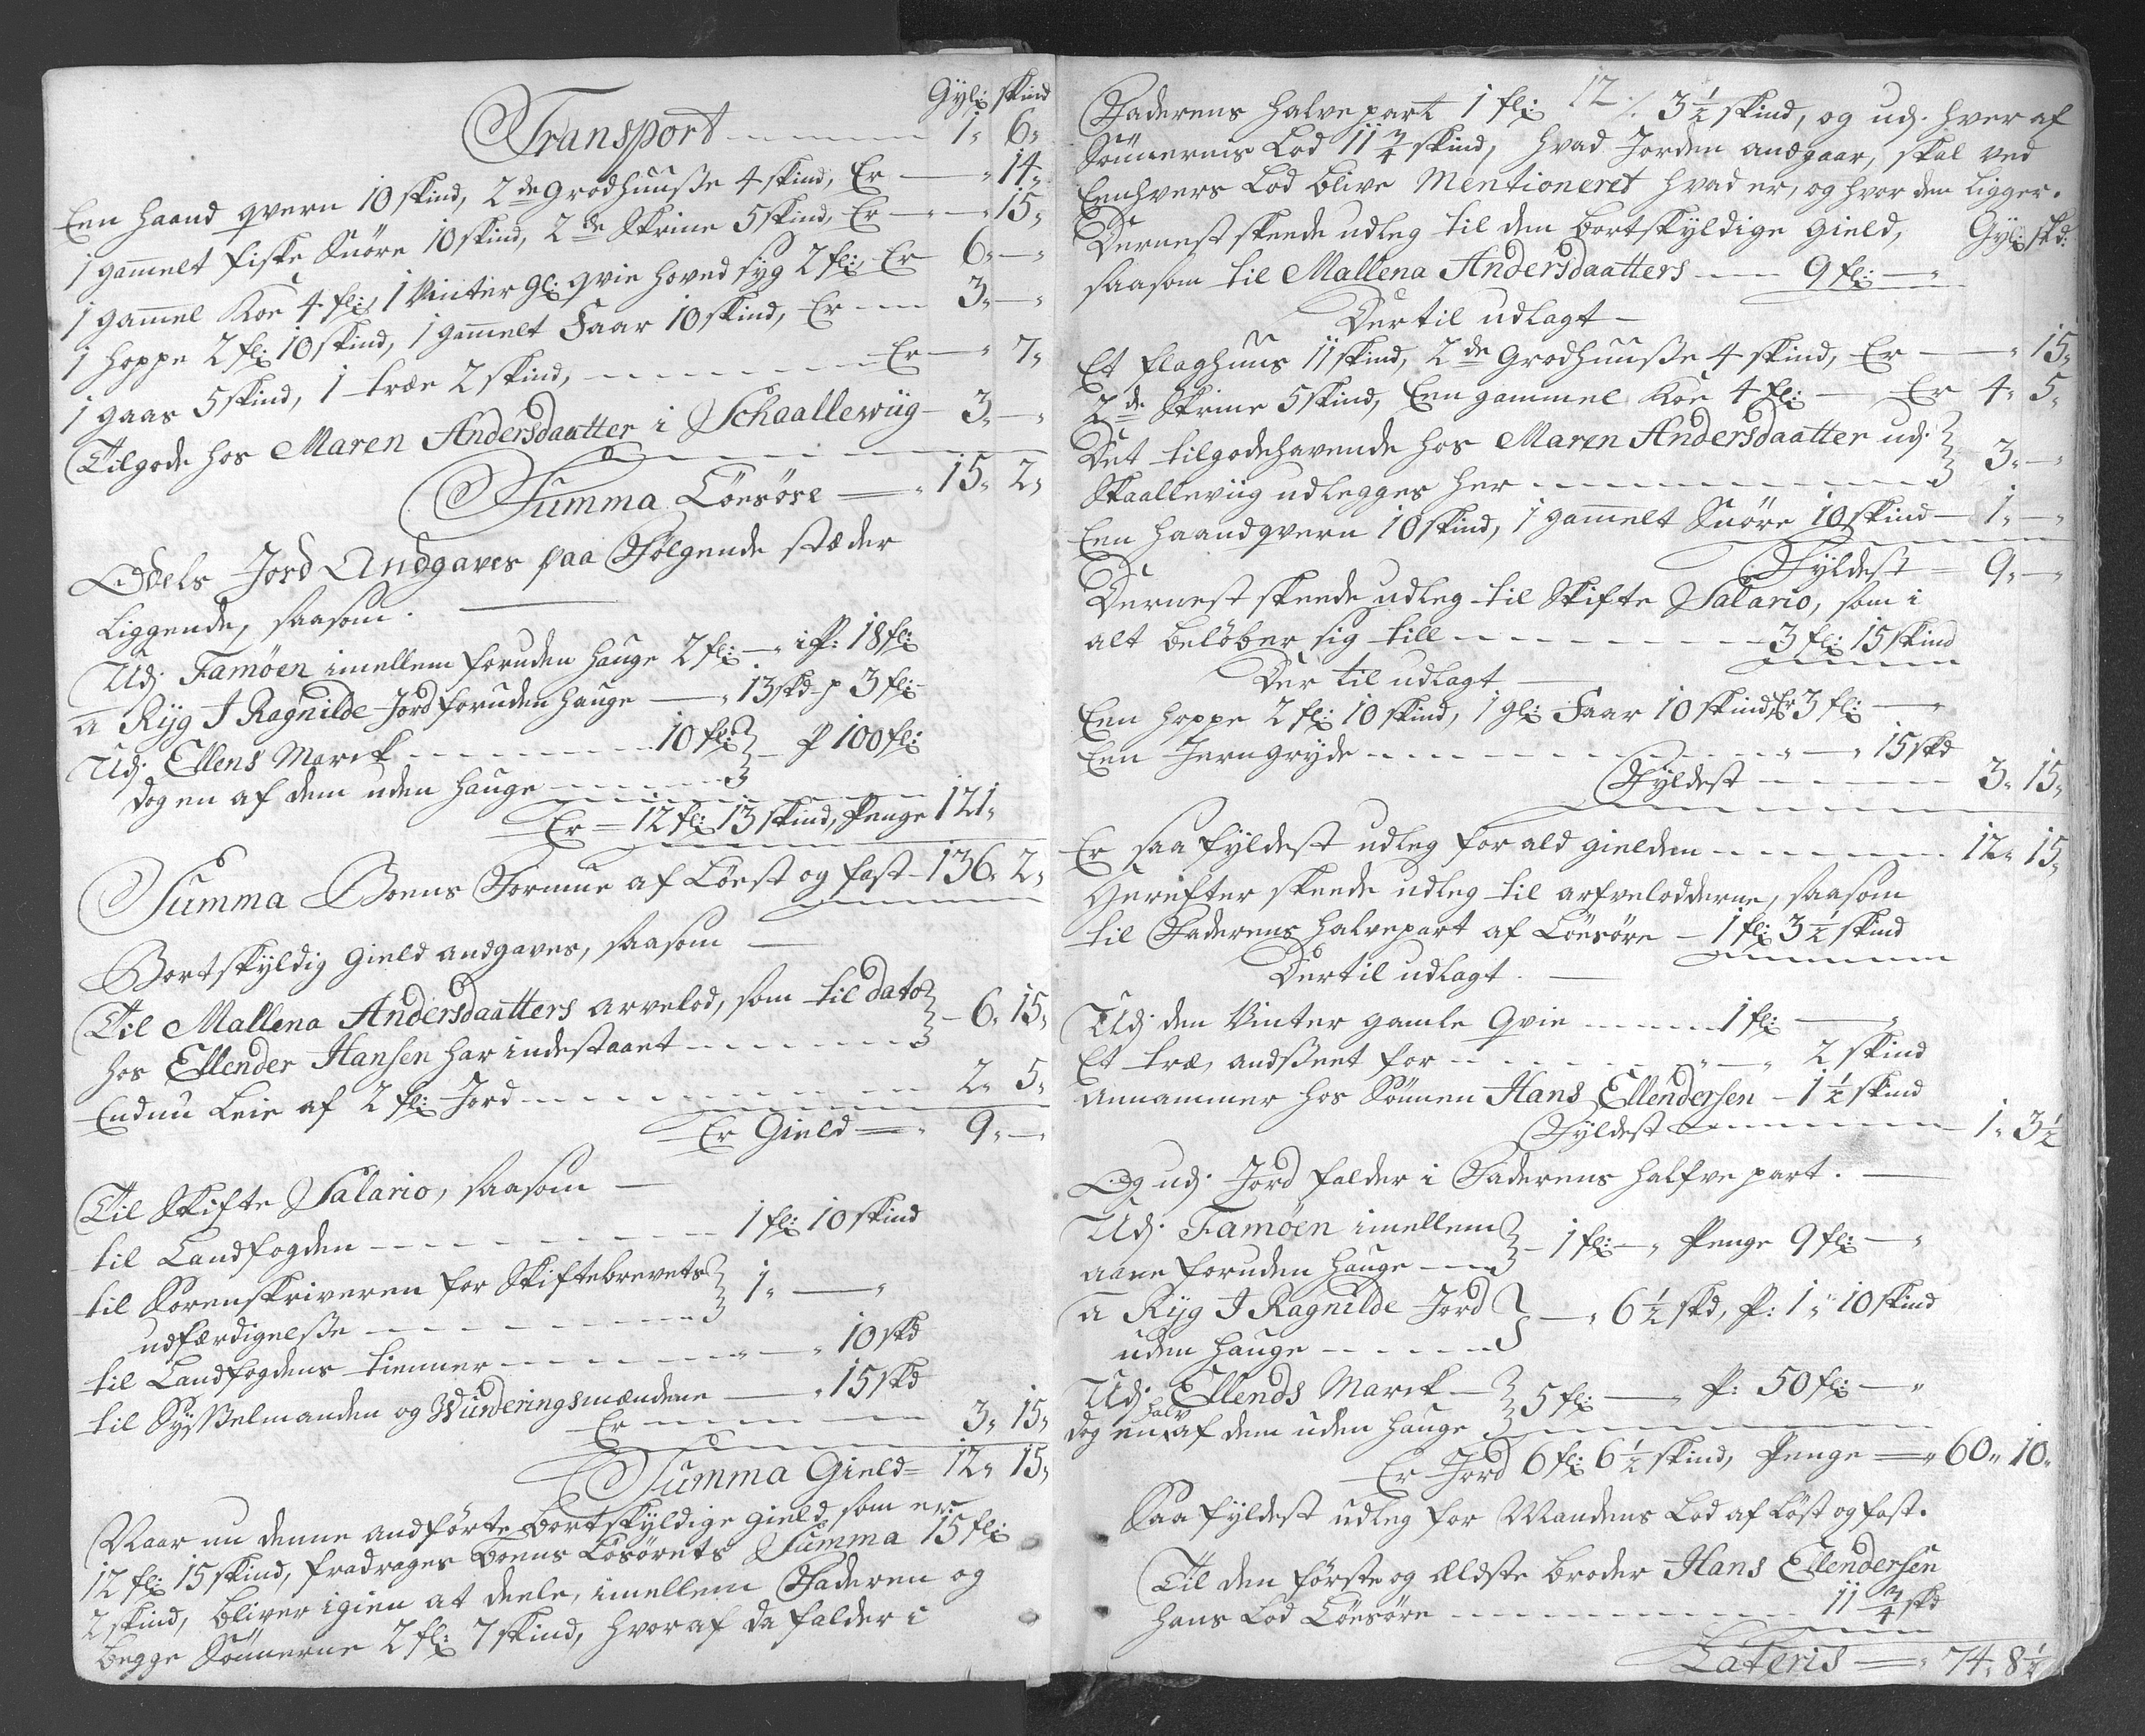 Gyl: skind
Transport - - - - - 1„ 6„
Een haand qvern 10 skind, 2de Grødhuusse 4 skind, Er — „ 14„
1 gammelt fiske Snöre 10 skind, 2de Skrine 5 skind, Er - — „ 15„
1 gammel Koe 4 fl:, 1 Vinter gl: qvie hoved syg 2 fl: Er 6„ — „
1 hoppe 2 fl: 10 skind, 1 gammelt Faar 10 skind, Er - - - 3„ — „
1 gaas 5 skind, 1 træe 2 skind, - - - - - - - Er — „ 7„
Tilgode hos Maren Andersdaatter i Schaallewiig - 3„ — „
Summa Löesöre — „ 15„ 2„
Odels Jord Andgaves paa Fölgende stæder
Liggende, saasom. —
Udj Famöen imellem foruden hauge 2 fl: — „ i P: 18 fl:
a Ryg I Ragnilde Jord foruden hauge — „ 13 skd - p 3 fl: -
Udj Ellens Marck - - - - - - - 10 fl: } - P 100 fl:
dog en af dem uden hauge - - - - -
Er = 12 fl: 13 skind, Penge 121„
Summa Boens Formue af Löest og fast - 136„ 2„
Bortskyldig Gield andgaves, saasom —
Til Mallena Andersdaatters arvelod, som til dato } - 6„ 15„
hos Ellender Hansen har indestaaet - - - - - - -
Endnu Leie af 2 fl: Jord - - - - - - - - - 2„ 5„
Er Gield — „ 9„ — „
Til Skifte Salario, saasom —
til Landfogden - - - - - - - - - 1 fl: 10 skind
til Sorenskriveren for Skiftebrevets } 1„ — „
udfærdigelsse - - - - - - - -
til Landfogdens tienner - - - - - - - „ — „ 10 skd
til Sysselmanden og Wurderingsmændene — „ 15 skd
Er - - - - - - 3„ 15„
Summa Gield = 12„ 15„
Naar nu denne andförte bortskyldige gield, som er
12 fl: 15 skind, fradrages boens Lösörets Summa 15 fl:
2 skind, bliver igien at deele, imellem Faderen og
begge Sönnerne 2 fl: 7 skind, hvoraf da falder i
Faderens halve part 1 fl: 12 ./. 3½ skind, og udj. hver af
Sönnernis Lod 11¾ skind, hvad Jorden andgaar, skal ved
Eenhvers Lod blive Mentioneret hvad er, og hvor den ligger.
Dernest skeede udleg til den bortskyldige gield, Gyl: skd:
saasom til Mallena Andersdaatters - - - 9 fl: — „
Dertil udlagt —
Et flaghuus 11 skind, 2de Grødhuusse 4 skind, Er — „ 15„
2de Skrine 5 skind, Een gammel Koe 4 fl: — Er 4„ 5„
Det tilgodehavende hos Maren Andersdaatter udj. } 3„ — „
Skaalleviig udlegges her - - - - - - - - -
Een haandqvern 10 skind, 1 gammelt Snöre 10 skind - 1„ — „
Fyldest = 9„ — „
Dernest skeede udleg til Skifte Salario, som i
alt belöber sig till - - - - - - - - 3 fl: 15 skind
Der til udlagt —
Een hoppe 2 fl: 10 skind, 1 gl: Faar 10 skind, Er 3 fl: — „
Een Jerngryde - - - - - - - - - „ — „ 15 skd
Fyldest - - - - - 3„ 15„
Er saa fyldest udleg for ald gielden - - - - - - 12„ 15„
Herefter skeede udleg til arfvelodderne, saasom
til Faderens halvepart af Löesöre - 1 fl: 3½ skind
Dertil udlagt. —
Udj den Vinter gamle Qvie - - - - 1 fl: — „
Et træ, andsseet for - - - - - - - „ — „ 2 skind
Annammer hos Sönnen Hans Ellendersen - 1½ skind
Fyldest - - - - - - - 1„ 3½
Og udj. Jord falder i Faderens halfve part. —
Udj. Famöen imellem } - 1 fl: — „ Penge 9 fl: — „
aaene foruden hauge - - -
a Ryg I Ragnilde Jord } — „ 6½ skd, P: 1„ 10 skind
uden hauge - - - - -
Udj. Ellends Marck - } 5 fl: — „ P: 50 fl: — „
dog en halv af dem uden hauge
Er Jord 6 fl: 6½ skind, Penge = „ 60„ 10„
Saa fyldest udleg for Mandens Lod af Löst og fast.
Til den förste og Ældste broder Hans Ellendersen
hans Lod Löesöre - - - - - - - - - 11¾ skd
Lateris — „ 74„ 8½